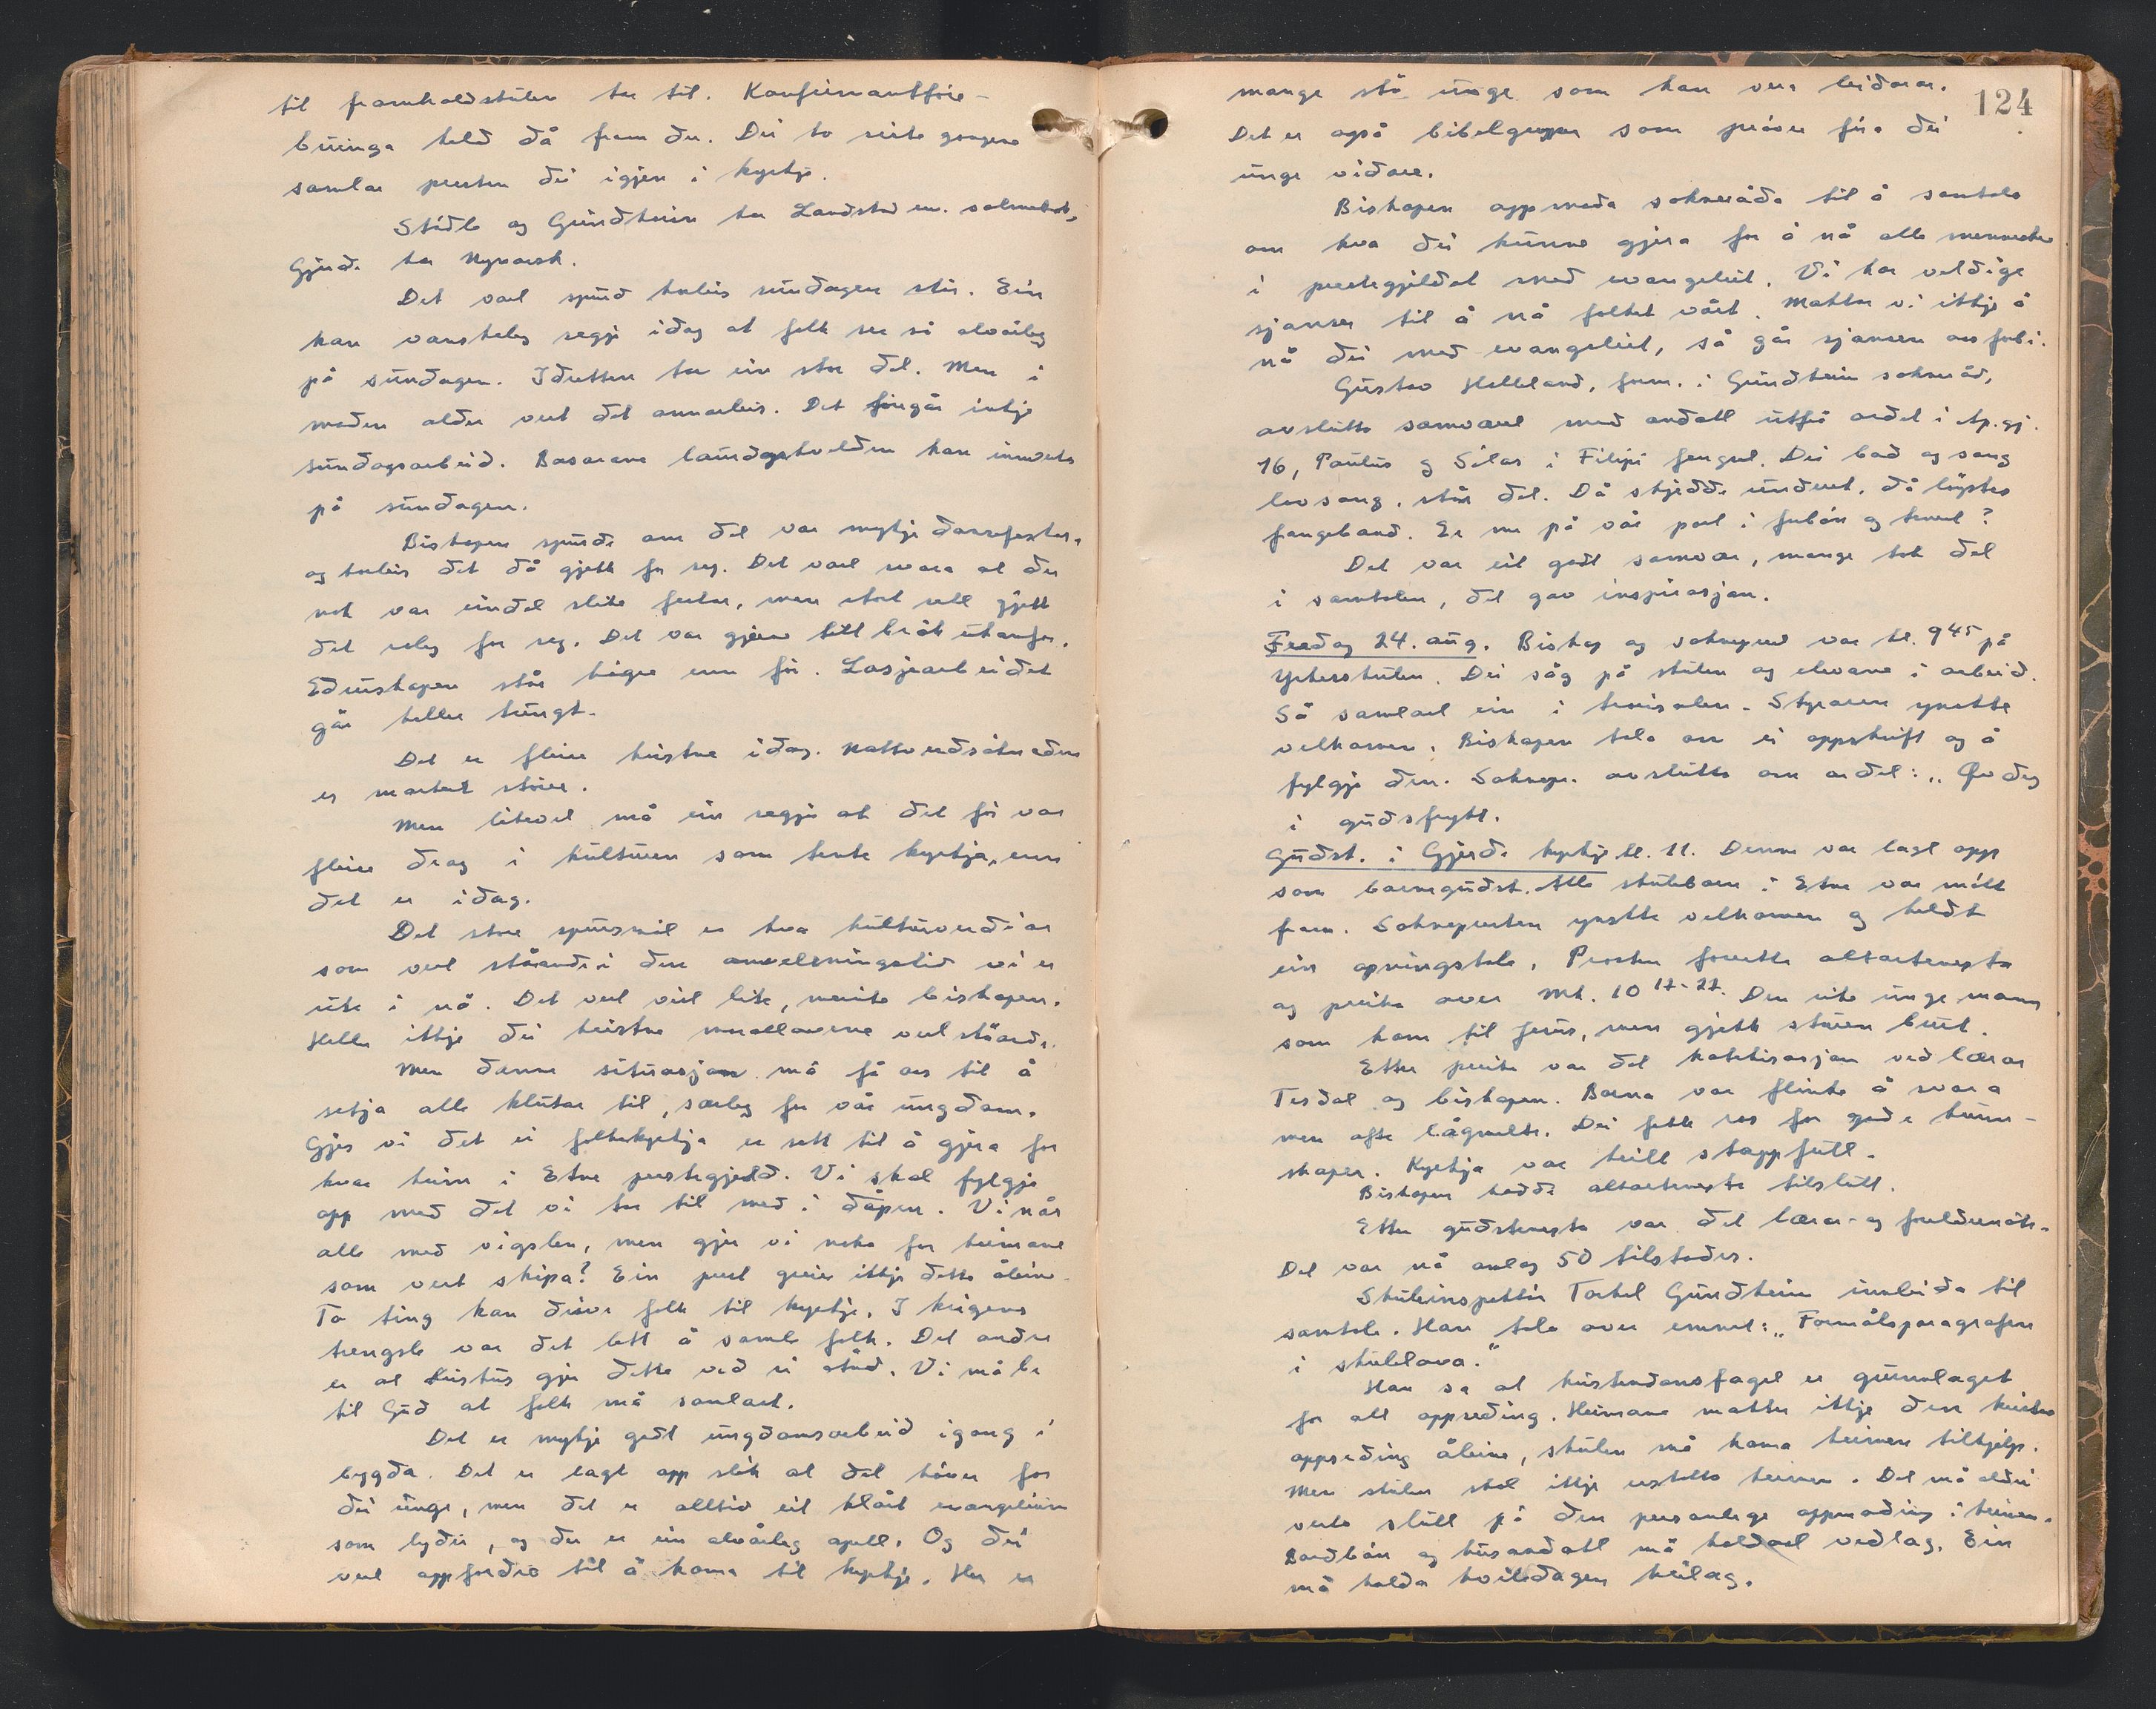 til framhaldskulen tar til. Konfirmantfyre-
buinga held då fram der. Dei to siste gongene
samlar presten dei igjen i kyrkje.
Stødle og Grindheim har Landstad rev. salmebok,
Gjerde har Nynorsk.
Det vart spurd korleis sundagen står. Ein
kan vanskeleg segja idag at folk ser så alvorleg
på sundagen. Idretten tar ein stor del. Men i
moden alder vert det annarleis. Det foregår inkje
sundagsarbeid. Basarane laurdagskvelden kan innverke
på sundagen.
Bishopen spurde om det var mykje dansefester,
og korleis det då gjekk for seg. Det vart svara at der
nok var eindel slike fester, men stort sett gjekk
det roleg for seg. Det var gjerne litt bråk utanfor.
Edruskapen står høgre enn før. Losjearbeidet
går heller tungt.
Det er fleire kristne idag. Nattverdsøknaden
er markert større.
Men likevel må ein segja at det før var
fleire drag i kulturen som tente kyrkja, enn
det er idag.
Det store spursmål er kva kulturverdiar
som vert ståande i den omveltningstid vi er
ute i nå. Det vert visst lite, meinte bishopen.
Heller ikkje dei kristne morallovene vert ståande.
Men denne situasjon må få oss til å
setja alle klutar til, særleg for vår ungdom.
Gjer vi det ei folkekyrkja er sett til å gjera for
kvar heim i Etne prestegjeld. Vi skal fylgje
opp med det vi tar til med i dåpen. Vi når
alle med vigslen, men gjer vi noko for heimane
som vert skipa? Ein prest greier ikkje dette åleine.
To ting kan drive folk til kyrkje. I krigens
trengsle var det lett å samle folk. Det andre
er at Kristus gjer dette ved si ånd. Vi må be
til Gud at folk må samlast.
Det er mykje godt ungdomsarbeid igang i
bygda. Det er lagt opp slik at det høver for
dei unge, men det er alltid eit klårt evangelium
som lyder, og der er ein alvorleg apell. Og dei
vert oppfordra til å koma til kyrkje. Her er
124
mange slå unge som kan vera leidarar.
Det er også bibelgrupper som prøver føra dei
unge vidare.
Bishopen oppmoda sokneråda til å samtala
om kva dei kunne gjera for å nå alle mennesker
i prestegjeldet med evangeliet. Vi har veldige
sjanser til å nå folket vårt. Maktar vi ikkje å
nå dei med evangeliet, så går sjansen oss forbi.
Gustav Helleland, form. i Grindheim sokneråd,
avslutta samværet med andakt utfrå ordet i Ap.gj.
16, Paulus og Silas i Filipi fengsel. Dei bad og song
lovsong, står det. Då skjedde underet, då løystes
fangeband. Er me på vår post i forbøn og teneste?
Det var eit godt samvær, mange tok del
i samtalen, det gav inspirasjon.
Fredag 24. aug. Biskop og sokneprest var kl. 9⁴⁵ på
Yrkesskulen. Dei såg på skulen og elevane i arbeid.
Så samlast ein i teorisalen. Styraren ynskte
velkomen. Bishopen tala om ei oppskrift og å
fylgje den. Soknepr. avslutta om ordet: „Øv deg
i gudsfrykt.
Gudst. i Gjerde kyrkje kl. 11. Denne var lagt opp
som barnegudst. Alle skulebarn i Etne var møtt
fram. Soknepresten ynskte velkomen og heldt
ein opningstale. Prosten forretta altartenesta
og preika over Mk. 10 17-27. Den rike unge mann
som kom til Jesus, men gjekk sturen burt.
Etter preika var det katekisasjon ved lærar
Tesdal og bishopen. Borna var flinke å svara
men ofte lågmælte. Dei fekk ros for gode kunn-
skaper. Kyrkja var heilt stappfull.
Bishopen hadde altartenesta tilslutt.
Etter gudstenesta var det lærar- og foreldremøte.
Det var nå omlag 50 tilstades.
Skuleinspektør Torkel Grindheim innleida til
samtale. Han tala over emnet: „Formålsparagrafen
i skulelova."
Han sa at kristendomsfaget er grunnlaget
for all oppseding. Heimane maktar ikkje den kristne
oppseding åleine, skulen må koma heimen tilhjelp.
Men skulen skal ikkje erstatta heimen. Det må aldri
verta slutt på den personlege oppseding i heimen.
Bordbøn og husandakt må haldast vedlag. Ein
må halda kviledagen heilag.